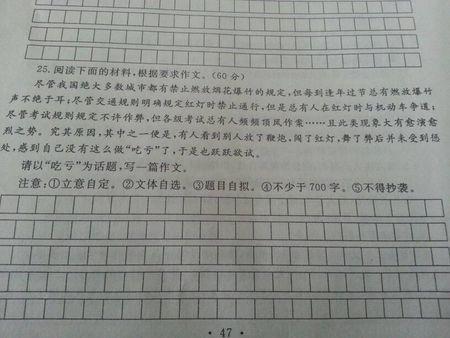 25. 阅读下面的材料,根据要求作文。(60 分)
尽管我国绝大多数城市都有禁止燃放烟花爆竹的规定,但每到逢年过节总有燃放爆竹
声不绝于耳;尽管交通规则明确规定红灯时禁止通行,但是总有人在红灯时与机动车争道;
尽管考试规则规定不许作弊,但各级考试总有人频频顶风作案……且此类现象大有愈演愈
烈之势。究其原因,其中之一便是,有人看到别人放了鞭炮,闯了红灯,舞了弊后并未受到惩
处,感到自己没有这么做“吃亏”了,于是也跃跃欲试。
请以“吃亏”为话题,写一篇作文。
注意:①立意自定。②文体自选。③题目自拟。④不少于 700 字。⑤不得抄袭。
· 47 ·